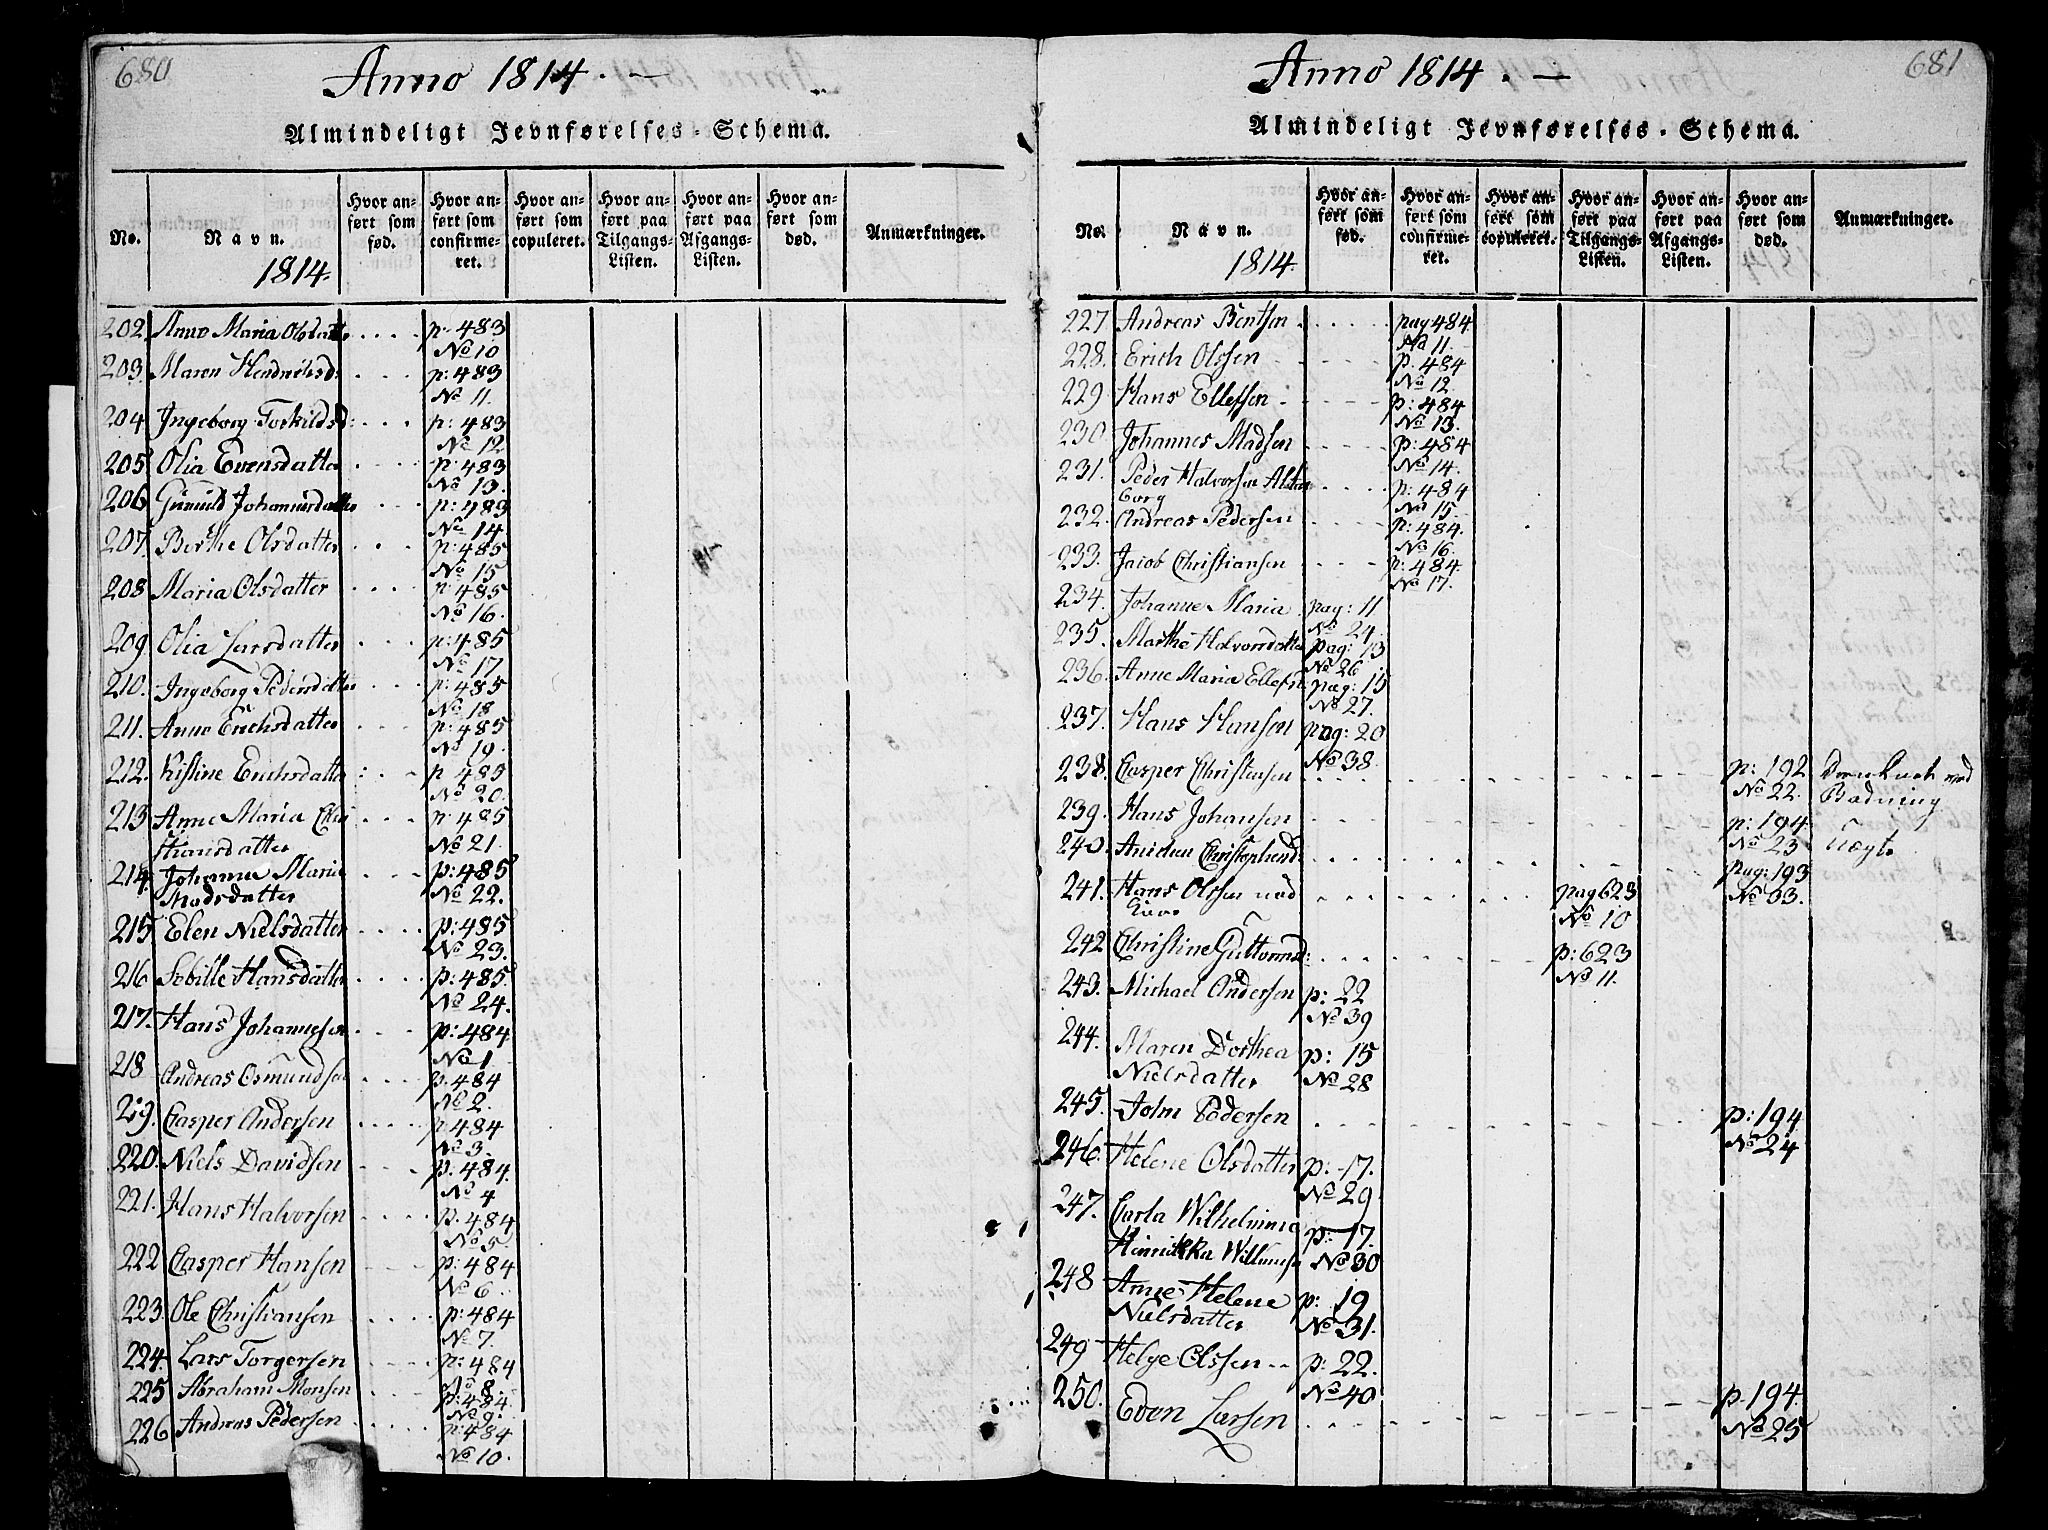 680
Anno 1814. -
Almindeligt Jevnførelses-Schema.
No. Navn. 1814. Hvor anført som fød. Hvor anført som confirmeret. Hvor anført som copuleret. Hvor anført paa Tilgangs-Listen. Hvor anført paa Afgangs-Listen. Hvor anført som død. Anmærkninger.
202 Anne Maria Olsdatter . . . . p. 483
No 10
203. Maren Hendrichsd: . . . p: 483
No 11.
204 Ingeborg Torkildsd: . . . p: 483
No 12
205 Olia Evensdatter . . . . p: 483
No 13.
206 Gunild Johannisdatter . . . p: 483
No 14
207. Berthe Olsdatter . . p: 485
No 15
208 Maria Olsdatter . . . . p: 485
No 16.
209. Olia Larsdatter . . . p: 485
No 17
210. Ingeborg Pedersdatter . . . p: 485
No 18
211. Anne Erichsdatter . . . p: 485
No 19.
212. Kistine Erichsdatter : . - p 485
No 20.
213 Anne Maria Chri . . . p: 485
stiansdatter No 21.
214. Johanne Maria . . . p: 485
Madsdatter No 22.
215 Elen Nielsdatter . . . . p: 485
No 23.
216 Sebille Hansdatter . . . . p: 485.
No 24.
217. Hans Johannesen . . . p: 484
No 1
218 Andreas Osmundsen . . . . p. 484
No 2.
219. Casper Andersen . . . . p 484
No 3.
220. Niels Davidsen . . . p. 484.
No 4
221. Hans Halvorsen . . . . p. 484
No 5.
222 Casper Hansen . . . . p: 484
No 6
223. Ole Christiansen . . . . p: 484
No 7.
224. Lars Torgersen . . . . p: 484
No 8.
225 Abraham Monsen . . . p: 484.
No 9.
226 Andreas Pedersen . . . . p: 484
No 10.
681
Anno 1814. -
Almindeligt Jevnførelses-Schema.
No. Navn. 1814. Hvor anført som fød. Hvor anført som confirmeret. Hvor anført som copuleret. Hvor anført paa Tilgangs-Listen. Hvor anført paa Afgangs-Listen. Hvor anført som død. Anmærkninger.
227 Andreas Bentsen . . . . . pag 484
No 11.
228. Erich Olssen - - - - p. 484
No 12.
229 Hans Ellefsen . - - - - p: 484
No 13.
230 Johannes Madsen p: 484
No 14.
231. Peder Halvorsen . . . . p: 484
borg No 15.
232. Andreas Pedersen . . . . p: 484.
No 16.
233. Jacob Christiansen . . . - p: 484.
No 17.
234. Johanne Maria pag: 11
No 24.
235. Marthe Halvorsdatter pag: 13
No 26
236. Anne Maria Ellefsd: pag: 15
No 27.
237. Hans Hansen pag: 20
No 38.
238. Casper Christensen p: 192 med
No 22. Badning
239. Hans Johansen p: 194
No 23
240. Christophersd: pag: 193
No 33.
241. Hans Olssen med pag 623
No 10
242 Christine Guttormsd: p: 623
No 11.
243. Michael Andersen p: 22
No 39
244. Maren Dorthea p: 15
Nielsdatter No 28
245. John Pedersen p: 194
No 24
246. Helene Olsdatter p: 17.
No 29
247. Carla Wilhelmina p: 17.
No 30
248 Anne Helene p: 19
Nielsdatter No 31.
249 Helge Olssen - - p: 22.
No 40
250. Even Larsen p. 194.
No 25